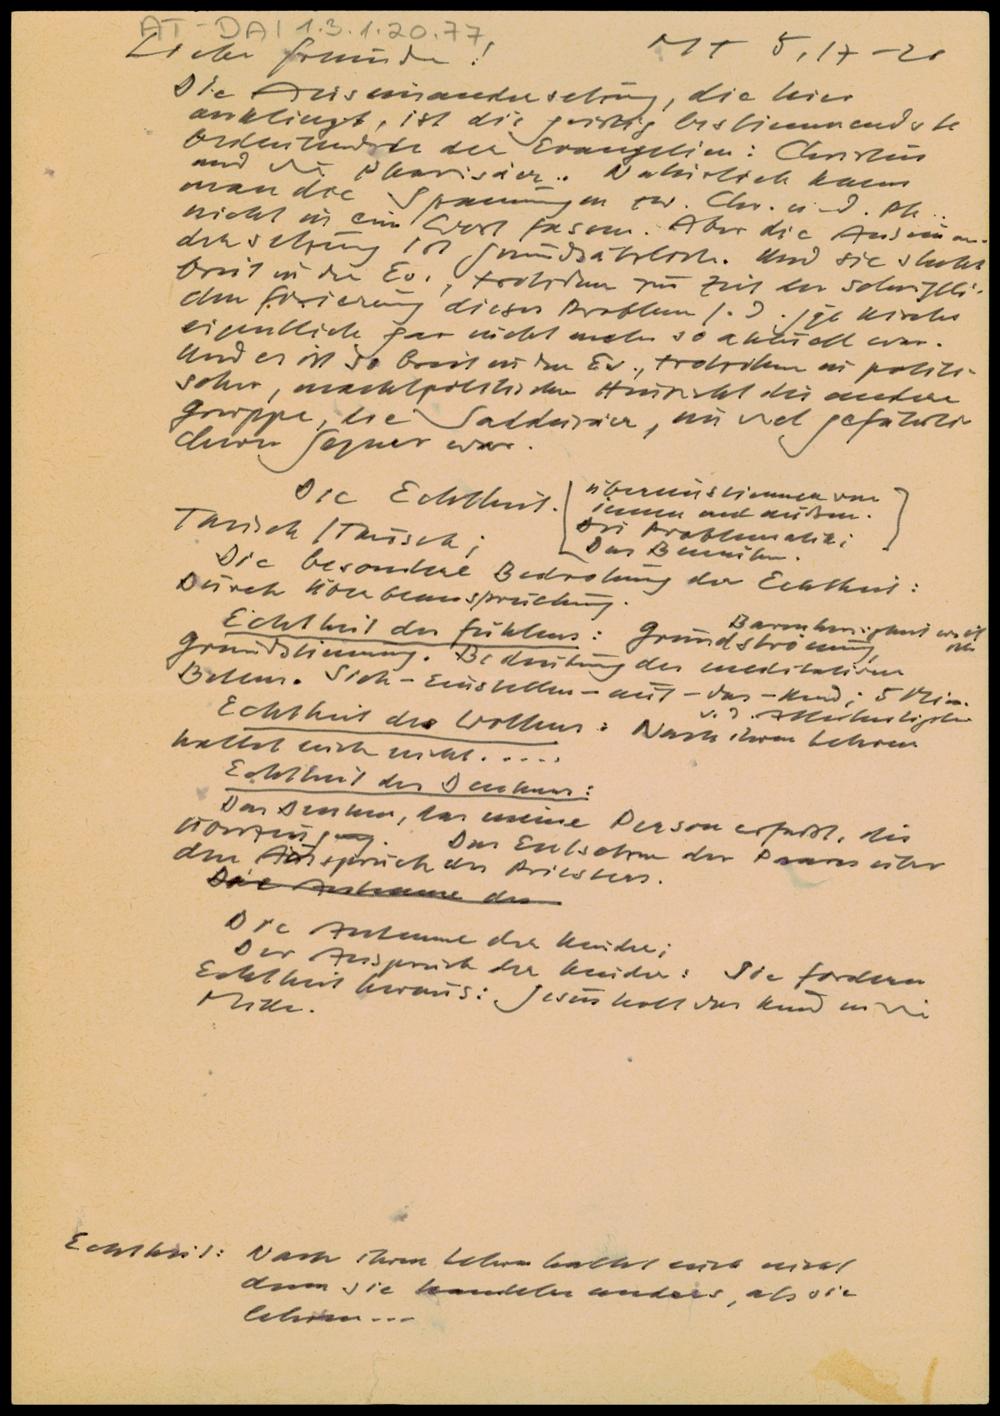 AT-DAI 1.3.1.20.77
Liebe Freunde! Mt 5,17-20
Die Auseinandersetzung, die hier
anklingt, ist die geistig bestimmendste
der Evangelien: Christus
und die Pharisäer. Natürlich kann
man die Spannungen zw. Chr. u. d. Ph.
nicht in ein Wort fassen. Aber die Auseinan-
dersetzung ist grundsätzlich. Und sie steht
breit in den Ev., trotzdem zur Zeit der schriftli-
chen Fixierung dieses Problem f. d. jge Kirche
eigentlich gar nicht mehr so aktuell war.
Und es ist so breit in den Ev., trotzdem in politi-
scher, machtpolitischer Hinsicht die andere
Gruppe, die Sadduzäer, ein viel gefährli-
cherer Gegner war.
Die Echtheit. übereinstimmen von
innen und außen.
Tausch / Täusch; Die Problematik:
Das Bemühen.
Die besondere Bedrohung der Echtheit:
Durch Überbeanspruchung.
Echtheit des Fühlens: Grundströmung, Barmherzigkeit
Grundstimmung. Bedeutung des meditativen
Betens. Sich-Einstellen-auf-das-Kind; 5 Min.
v. d. Allerheiligsten
Echtheit des Wollens: Nach ihren Lehren
haltet euch nicht.....
Echtheit des Denkens:
Das Denken, das meine Person erfaßt, die
Überzeugung. Das Entsetzen des Paares über
den Ausspruch des Priesters.
Die Antenne der
Die Antenne der Kinder;
Der Anspruch der Kinder: Sie fordern
Echtheit heraus: Jesus holt das Kind in die
Mitte.
Echtheit: Nach ihren Lehren haltet euch nicht
denn sie handeln anders, als sie
lehren...